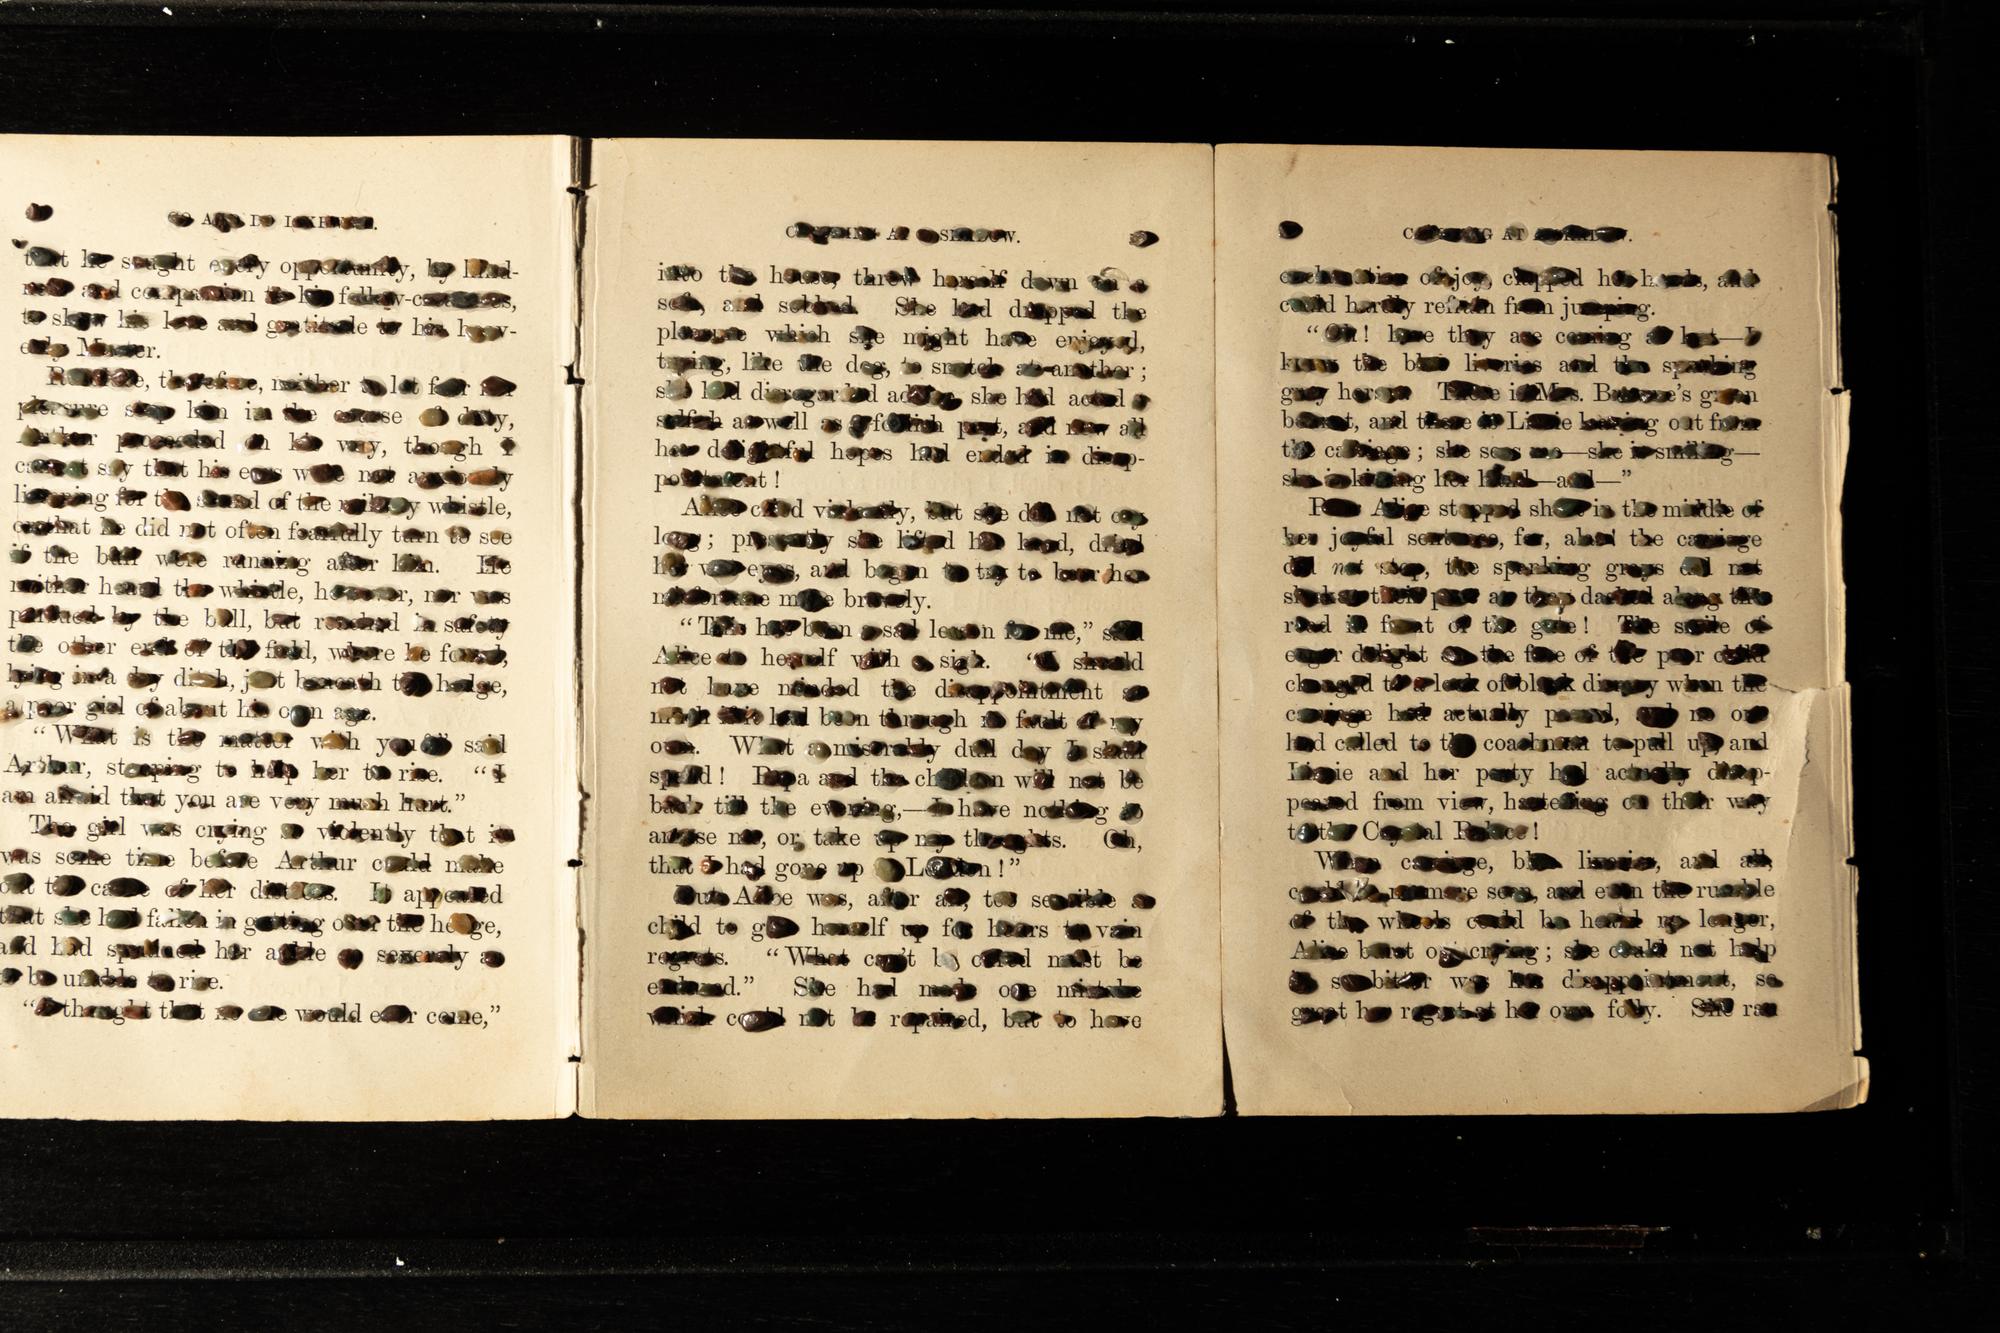 GO AND DO LIKEWISE.
that he sought every opportunity, by kind-
ness and compassion to his fellow-creatures,
to show his love and gratitude to his heav-
enly Master.
Resolute, therefore, neither to let fear nor
pleasure stop him in the course of duty,
Arthur proceeded on his way, though I
cannot say that his ears were not anxiously
listening for the sound of the railway whistle,
or that he did not often fearfully turn to see
if the bull were running after him. He
neither heard the whistle, however, nor was
pursued by the bull, but reached in safety
the other end of the field, where he found,
lying in a dry ditch, just beneath the hedge,
a poor girl of about his own age.
"What is the matter with you?" said
Arthur, stooping to help her to rise. "I
am afraid that you are very much hurt."
The girl was crying so violently that it
was some time before Arthur could make
out the cause of her distress. It appeared
that she had fallen in getting over the hedge,
and had sprained her ankle so severely as
to be unable to rise.
"I thought that no one would ever come,"
CATCHING AT A SHADOW.
into the house, threw herself down on a
sofa, and sobbed. She had dropped the
pleasure which she might have enjoyed,
trying, like the dog, to snatch at another;
she had disregarded advice, she had acted a
selfish as well as a foolish part, and now all
her delightful hopes had ended in disap-
pointment!
Alice cried violently, but she did not cry
long; presently she lifted her head, dried
her wet eyes, and began to try to bear her
misfortune more bravely.
"This has been a sad lesson for me," said
Alice to herself with a sigh. "I should
not have minded the disappointment so
much if it had been through no fault of my
own. What a miserably dull day I shall
spend! Papa and the children will not be
back till the evening,—I have nothing to
amuse me, or take up my thoughts. Oh,
that I had gone up to London!"
But Alice was, after all, too sensible a
child to give herself up for hours to vain
regrets. "What can't be cured must be
endured." She had made one mistake
which could not be repaired, but to have
CATCHING AT A SHADOW.
exclamation of joy, clapped her hands, and
could hardly refrain from jumping.
"Oh! here they are coming at last—I
know the blue liveries and the spanking
gray horses! There is Mrs. 's green
bonnet, and there is Lizzie leaning out from
the carriage; she sees me—she is smiling—
she is kissing her hand—and—"
Poor Alice stopped short in the middle of
her joyful sentence, for, alas! the carriage
did not stop, the spanking grays did not
slacken their pace as they dashed along the
road in front of the gate! The smile of
eager delight on the face of the poor child
changed to a look of blank dismay when the
carriage had actually passed, and no one
had called to the coachman to pull up, and
Lizzie and her party had actually disap-
peared from view, hastening on their way
to the Crystal Palace!
When carriage, blue liveries, and all,
could be no more seen, and even the rumble
of the wheels could be heard no longer,
Alice burst out crying; she could not help
it, so bitter was her disappointment, so
great her regret at her own folly. She ran